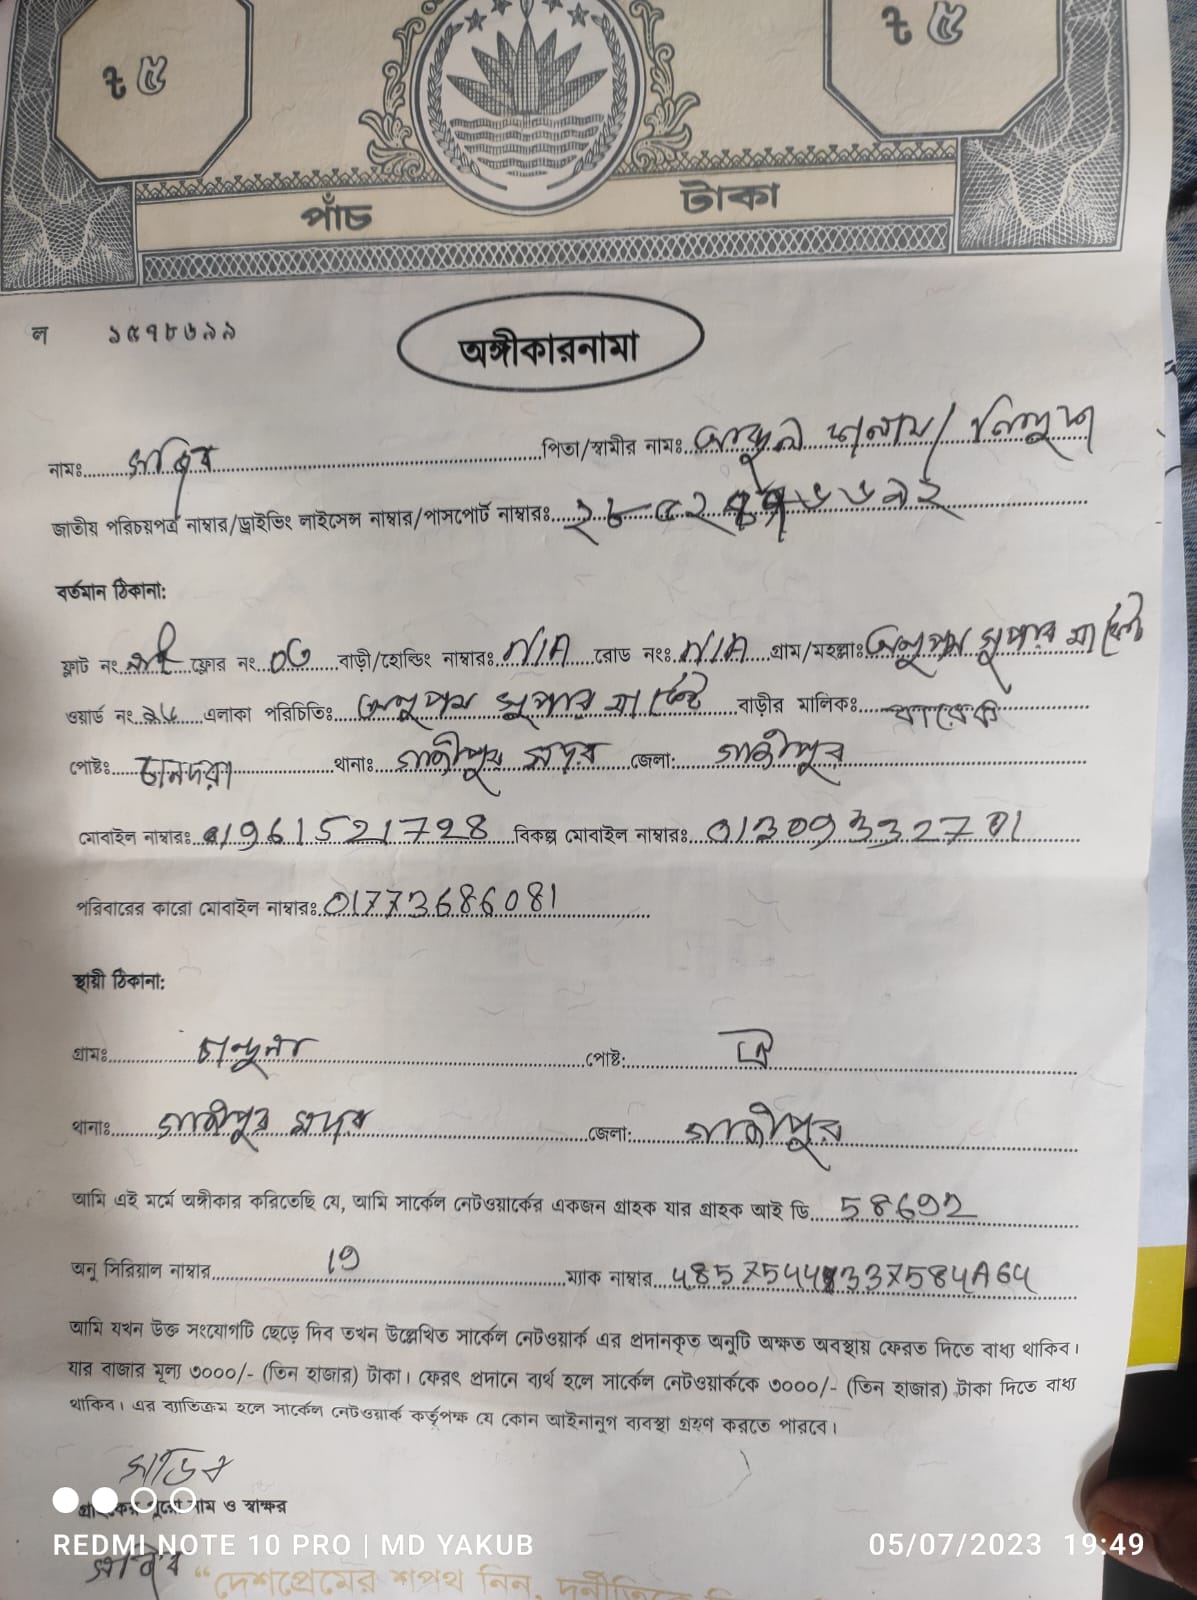 ট ৫ ট ৫
পাঁচ টাকা
ল ১৫৭৮৬৯৯
অঙ্গীকারনামা
নামঃ পিতা/স্বামীর নামঃ
জাতীয় পরিচয়পত্র নাম্বার/ড্রাইভিং লাইসেন্স নাম্বার/পাসপোর্ট নাম্বারঃ
বর্তমান ঠিকানা:
ফ্লাট নং ফ্লোর নং বাড়ী/হোল্ডিং নাম্বারঃ N/A রোড নংঃ N/A গ্রাম/মহল্লাঃ অনুপম সুপার মার্কেট
ওয়ার্ড নং এলাকা পরিচিতিঃ অনুপম সুপার মার্কেট বাড়ীর মালিকঃ
পোষ্টঃ থানাঃ গাজীপুর সদর জেলা: গাজীপুর
মোবাইল নাম্বারঃ 01961521728 বিকল্প মোবাইল নাম্বারঃ 01309332701
পরিবারের কারো মোবাইল নাম্বারঃ 01773686081
স্থায়ী ঠিকানা:
গ্রামঃ পোষ্ট: ঐ
থানাঃ গাজীপুর সদর জেলা: গাজীপুর
আমি এই মর্মে অঙ্গীকার করিতেছি যে, আমি সার্কেল নেটওয়ার্কের একজন গ্রাহক যার গ্রাহক আই ডি 58692
অনু সিরিয়াল নাম্বার 19 ম্যাক নাম্বার
আমি যখন উক্ত সংযোগটি ছেড়ে দিব তখন উল্লেখিত সার্কেল নেটওয়ার্ক এর প্রদানকৃত অনুটি অক্ষত অবস্থায় ফেরত দিতে বাধ্য থাকিব।
যার বাজার মূল্য ৩০০০/- (তিন হাজার) টাকা। ফেরৎ প্রদানে ব্যর্থ হলে সার্কেল নেটওয়ার্ককে ৩০০০/- (তিন হাজার) টাকা দিতে বাধ্য
থাকিব। এর ব্যাতিক্রম হলে সার্কেল নেটওয়ার্ক কর্তৃপক্ষ যে কোন আইনানুগ ব্যবস্থা গ্রহণ করতে পারবে।
গ্রাহকের পুরো নাম ও স্বাক্ষর
REDMI NOTE 10 PRO | MD YAKUB 05/07/2023 19:49
“দেশপ্রেমের শপথ নিন,